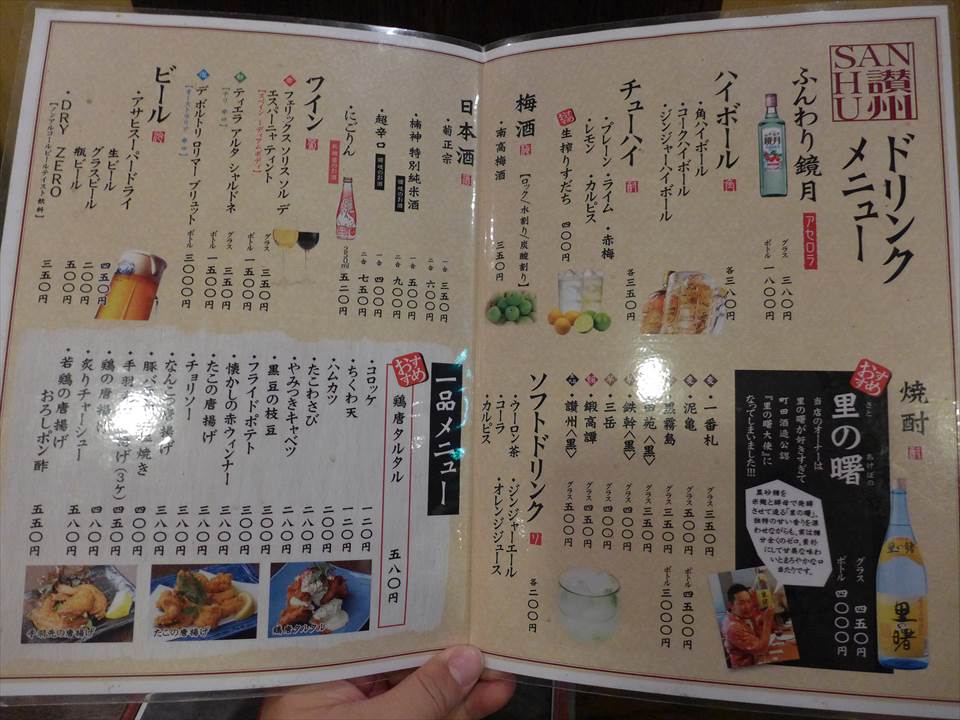 SAN
HU
讃州
ドリンク
メニュー
ふんわり鏡月
アセロラ
グラス 三八〇円
ボトル 一八〇〇円
ハイボール
・角ハイボール
・コークハイボール
・ジンジャーハイボール
各三八〇円
チューハイ
・プレーン・ライム・赤梅
・レモン・カルピス
各三五〇円
おすすめ
生搾りすだち 四〇〇円
梅酒
【ロック/水割り/炭酸割り】
・南高梅酒 三五〇円
日本酒
・菊正宗
一合 三五〇円
二合 六〇〇円
・楠神 特別純米酒
一合 五〇〇円
二合 九〇〇円
・超辛口
一合 四〇〇円
二合 七五〇円
・にごりん
250ml 五二〇円
ワイン
フェリックス ソリス ソル デ
エスパーニャ ティント
【スペイン ミディアムボディ】
グラス 三五〇円
ボトル 一五〇〇円
ティエラ アルタ シャルドネ
グラス 三五〇円
ボトル 一五〇〇円
デ ボルトリ ロリマー ブリュット
ボトル 三〇〇〇円
ビール
・アサヒスーパードライ
生ビール 四五〇円
グラスビール 二〇〇円
瓶ビール 五〇〇円
・DRY ZERO 三五〇円
【ノンアルコールビールテイスト飲料】
焼酎
おすすめ
里の曙
さと あけぼの
当店のオーナーは
里の曙が好きすぎて
町田酒造公認
『里の曙大使』に
なってしまいました!!!
黒砂糖を
米麹と酵母で発酵
させて造る「里の曙」。
独特の甘い香りを漂
わせながらも、実は糖
分全くのゼロ。素朴
にして甘美な味わ
いとまろやかな口
当たりです。
グラス 四五〇円
ボトル 四〇〇〇円
里の曙
・一番札 グラス 三五〇円
・泥亀
・黒霧島 グラス 三五〇円
・田苑〈黒〉
・鉄幹〈黒〉
・三岳
・鍛高譚
・讃州〈黒〉
ボトル 四五〇〇円
ボトル 三〇〇〇円
ソフトドリンク
・ウーロン茶 ・ジンジャーエール
・コーラ ・オレンジジュース
・カルピス
各二〇〇円
一品メニュー
おすすめ
鶏唐タルタル 五八〇円
・コロッケ 一二〇円
・ちくわ天 一二〇円
・ハムカツ 二〇〇円
・たこわさび 二八〇円
・やみつきキャベツ 二八〇円
・黒豆の枝豆 三〇〇円
・フライドポテト 三〇〇円
・懐かしの赤ウィンナー 二八〇円
・たこの唐揚げ 三八〇円
・チョリソー 三八〇円
・なんこつ唐揚げ 三八〇円
・豚バラ 焼き 四〇〇円
・手羽 げ(3ケ) 四五〇円
・鶏の唐揚げ 四五〇円
・炙りチャーシュー 四八〇円
・若鶏の唐揚げ
おろしポン酢 五五〇円
手羽先の唐揚げ
たこの唐揚げ
鶏唐タルタル